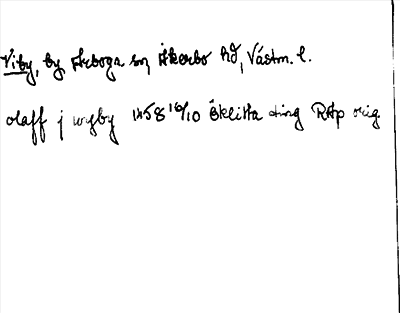 Viby, by, Arboga sn, Åkerbo hd, Västm. l.
olaff j wyby 1458 16/10 Öklista ting RAp orig